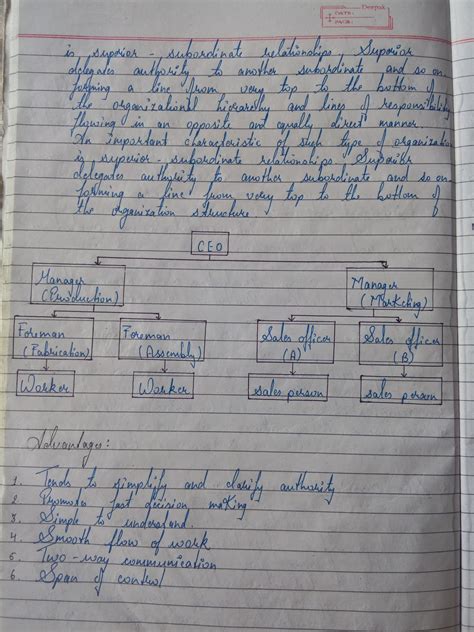 Deepak
DATE:
PAGE:
is superior - subordinate relationships. Superior
delegates authority to another subordinate and so on
forming a line from very top to the bottom of
the organizational hierarchy and lines of responsibility
flowing in an opposite and equally direct manner.
An important characteristic of such type of organization
is superior - subordinate relationships. Superior
delegates authority to another subordinate and so on
forming a line from very top to the bottom of
the organization structure
CEO
Manager
(Production)
Manager
(Marketing)
Foreman
(Fabrication)
Foreman
(Assembly)
Sales officer
(A)
Sales officer
(B)
Worker
Worker
sales person
sales person
Advantages:
1. Tends to simplify and clarify authority
2. Promotes fast decision making
3. Simple to understand.
4. Smooth flow of work
5. Two-way communication
6. Span of control